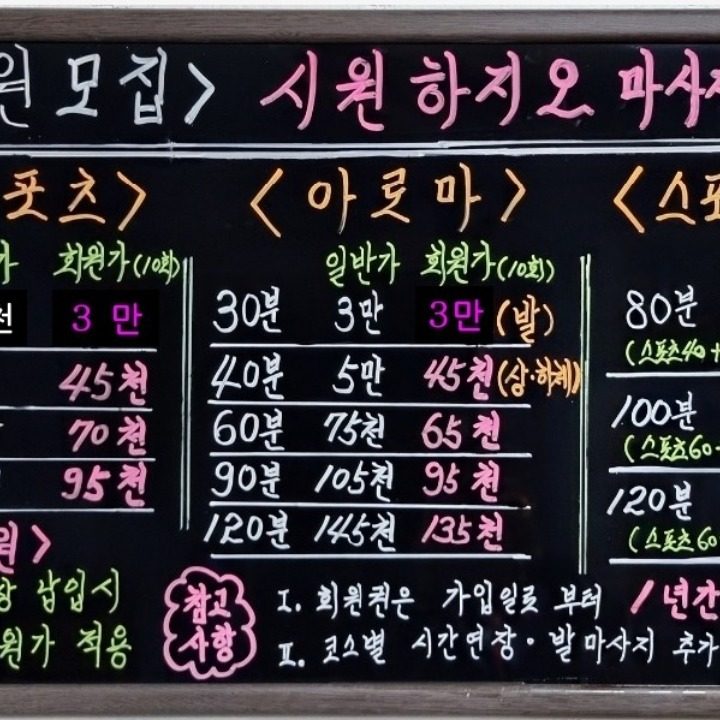 원 모집> 시원하지오 마사지
포츠>
가 회원가(10회)
천 3 만
45천
70천
95천
원>
납입시
원가 적용
<아로마>
일반가 회원가(10회)
30분 3만 3만 (발)
40분 5만 45천 (상·하체)
60분 75천 65천
90분 105천 95천
120분 145천 135천
<스포
80분
(스포츠40+
100분
(스포츠60-
120분
(스포츠60
참고
사항
I. 회원권은 가입일로 부터 1년간
II. 코스별 시간연장·발마사지 추가